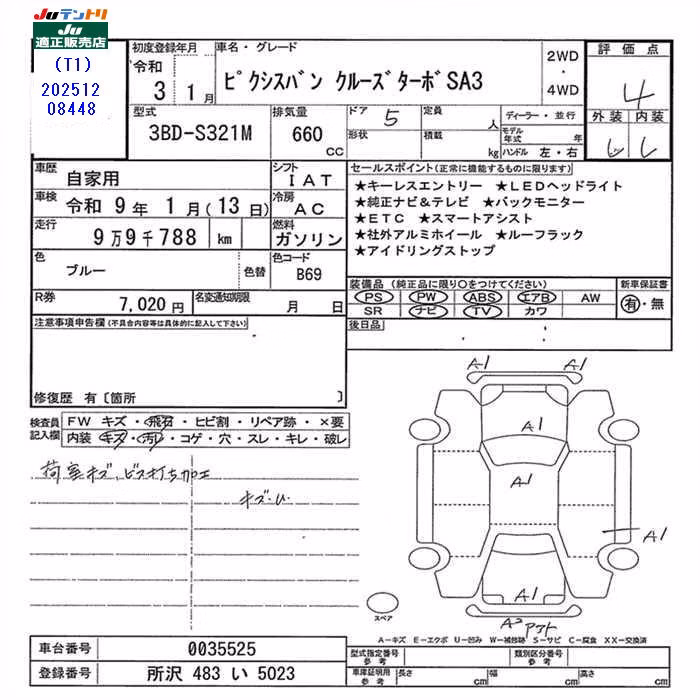 Juテントリ
Ju
適正販売店
(T1)
202512
08448
初度登録年月
令和
3 1月
車名・グレード
ピクシスバン クルーズターボSA3
2WD
・
4WD
評価点
4
外装 内装
型式
3BD-S321M
排気量
660
CC
ドア 5
形状
定員 人
積載 kg
ディーラー・並行
モデル年式 年
ハンドル 左・右
車歴
自家用
シフト
IAT
車検
令和 9年 1月(13日)
冷房
AC
走行
9万9千788 km
燃料
ガソリン
色
ブルー
色替
色コード
B69
R券
7,020円
名変通知期限
月 日
セールスポイント(正常に機能するものに限ります)
★キーレスエントリー ★LEDヘッドライト
★純正ナビ&テレビ ★バックモニター
★ETC ★スマートアシスト
★社外アルミホイール ★ルーフラック
★アイドリングストップ
装備品(純正品に限り〇をつけてください)
PS PW ABS エアB AW
SR ナビ TV カワ
新車保証書
有・無
後日品
注意事項申告欄(不具合内容等は具体的に記入して下さい)
修復歴 有〔箇所 〕
検査員
記入欄
FW キズ・飛石・ヒビ割・リペア跡・×要
内装 キズ・汚レ・コゲ・穴・スレ・キレ・破レ
荷室キズ、ビス打ち加工
キズ・U
A1 A1
A1
A1
A1
A1
A3 アウト
スペア
A-キズ E-エクボ U-凹み W-補修跡 S-サビ C-腐食 XX-交換済
車台番号
0035525
登録番号
所沢 483 い 5023
型式指定番号
参考
類別区分番号
参考
車庫証明用
参考
長さ cm
幅 cm
高さ cm